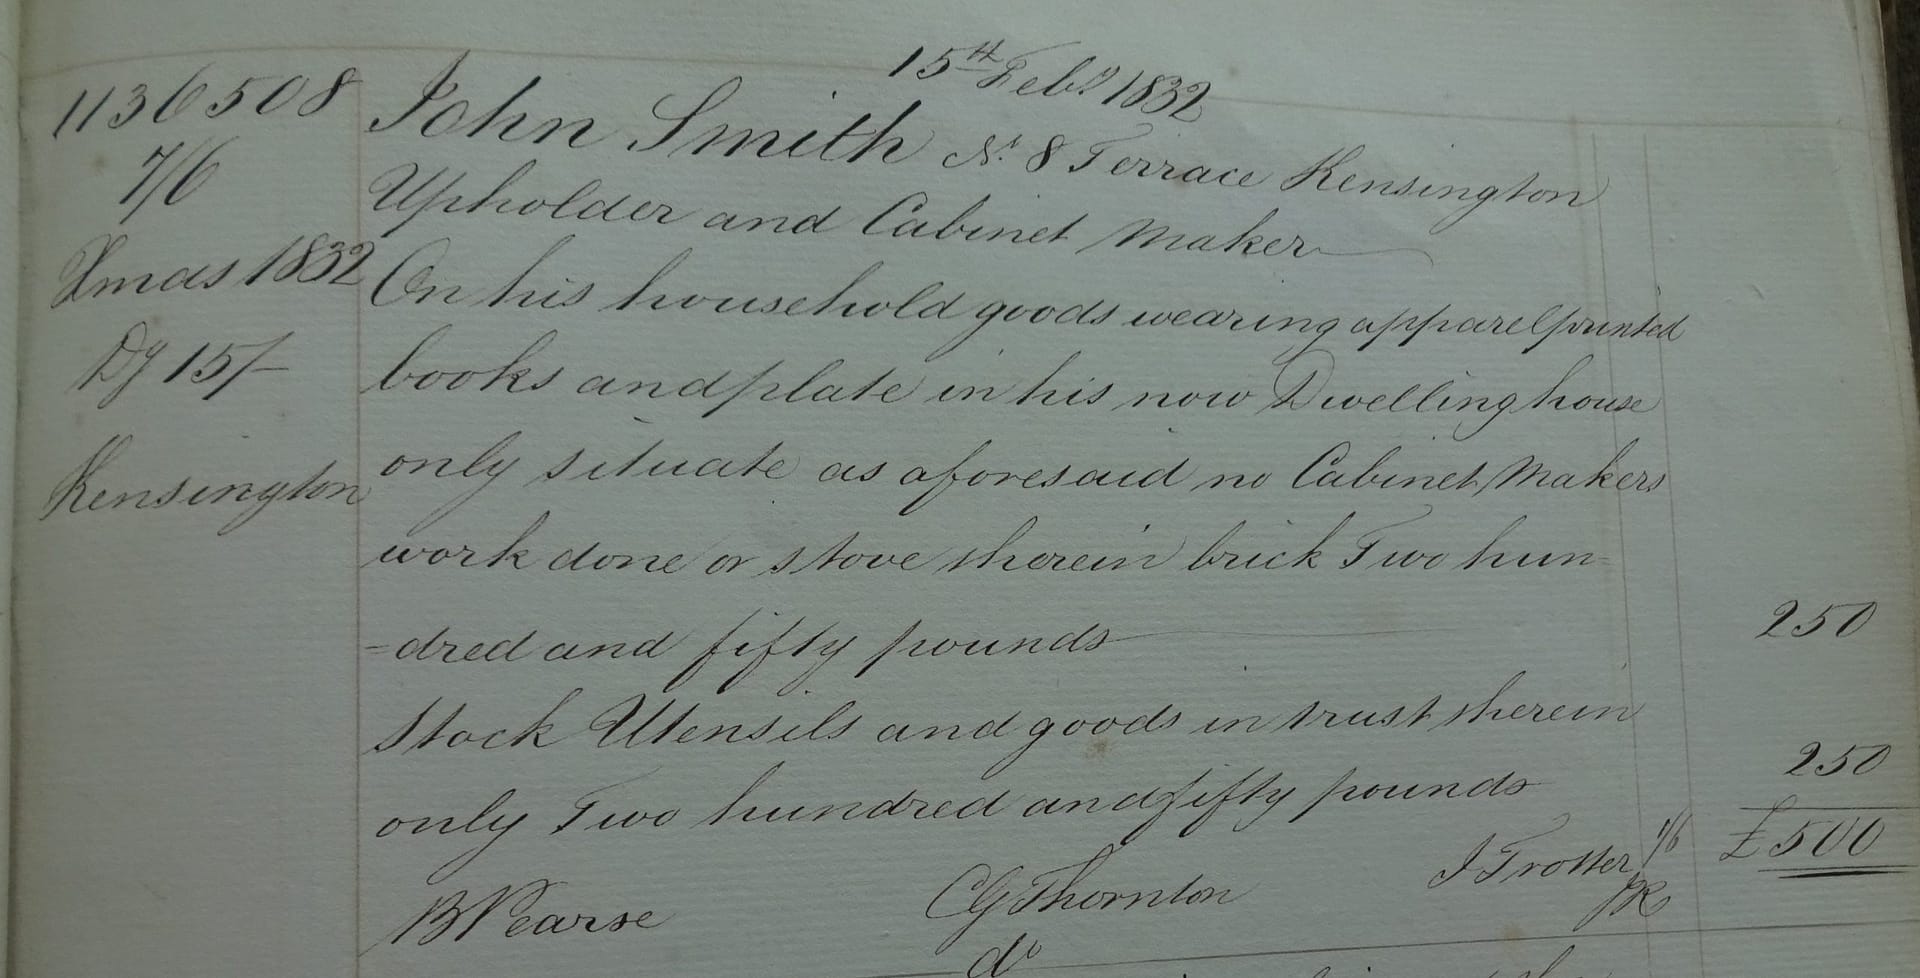 15th Feby 1832
1136508
John Smith No. 8 Terrace Kensington
7/6
Upholder and Cabinet Maker
Xmas 1832
On his household goods wearing apparel printed
Dy 15/-
books and plate in his now Dwelling house
Kensington
only situate as aforesaid no Cabinet Makers
work done or stove therein brick Two hun-
-dred and fifty pounds 250
Stock Utensils and goods in trust therein
only Two hundred and fifty pounds 250
£500
B Pearse CG Thornton J Trotter
do